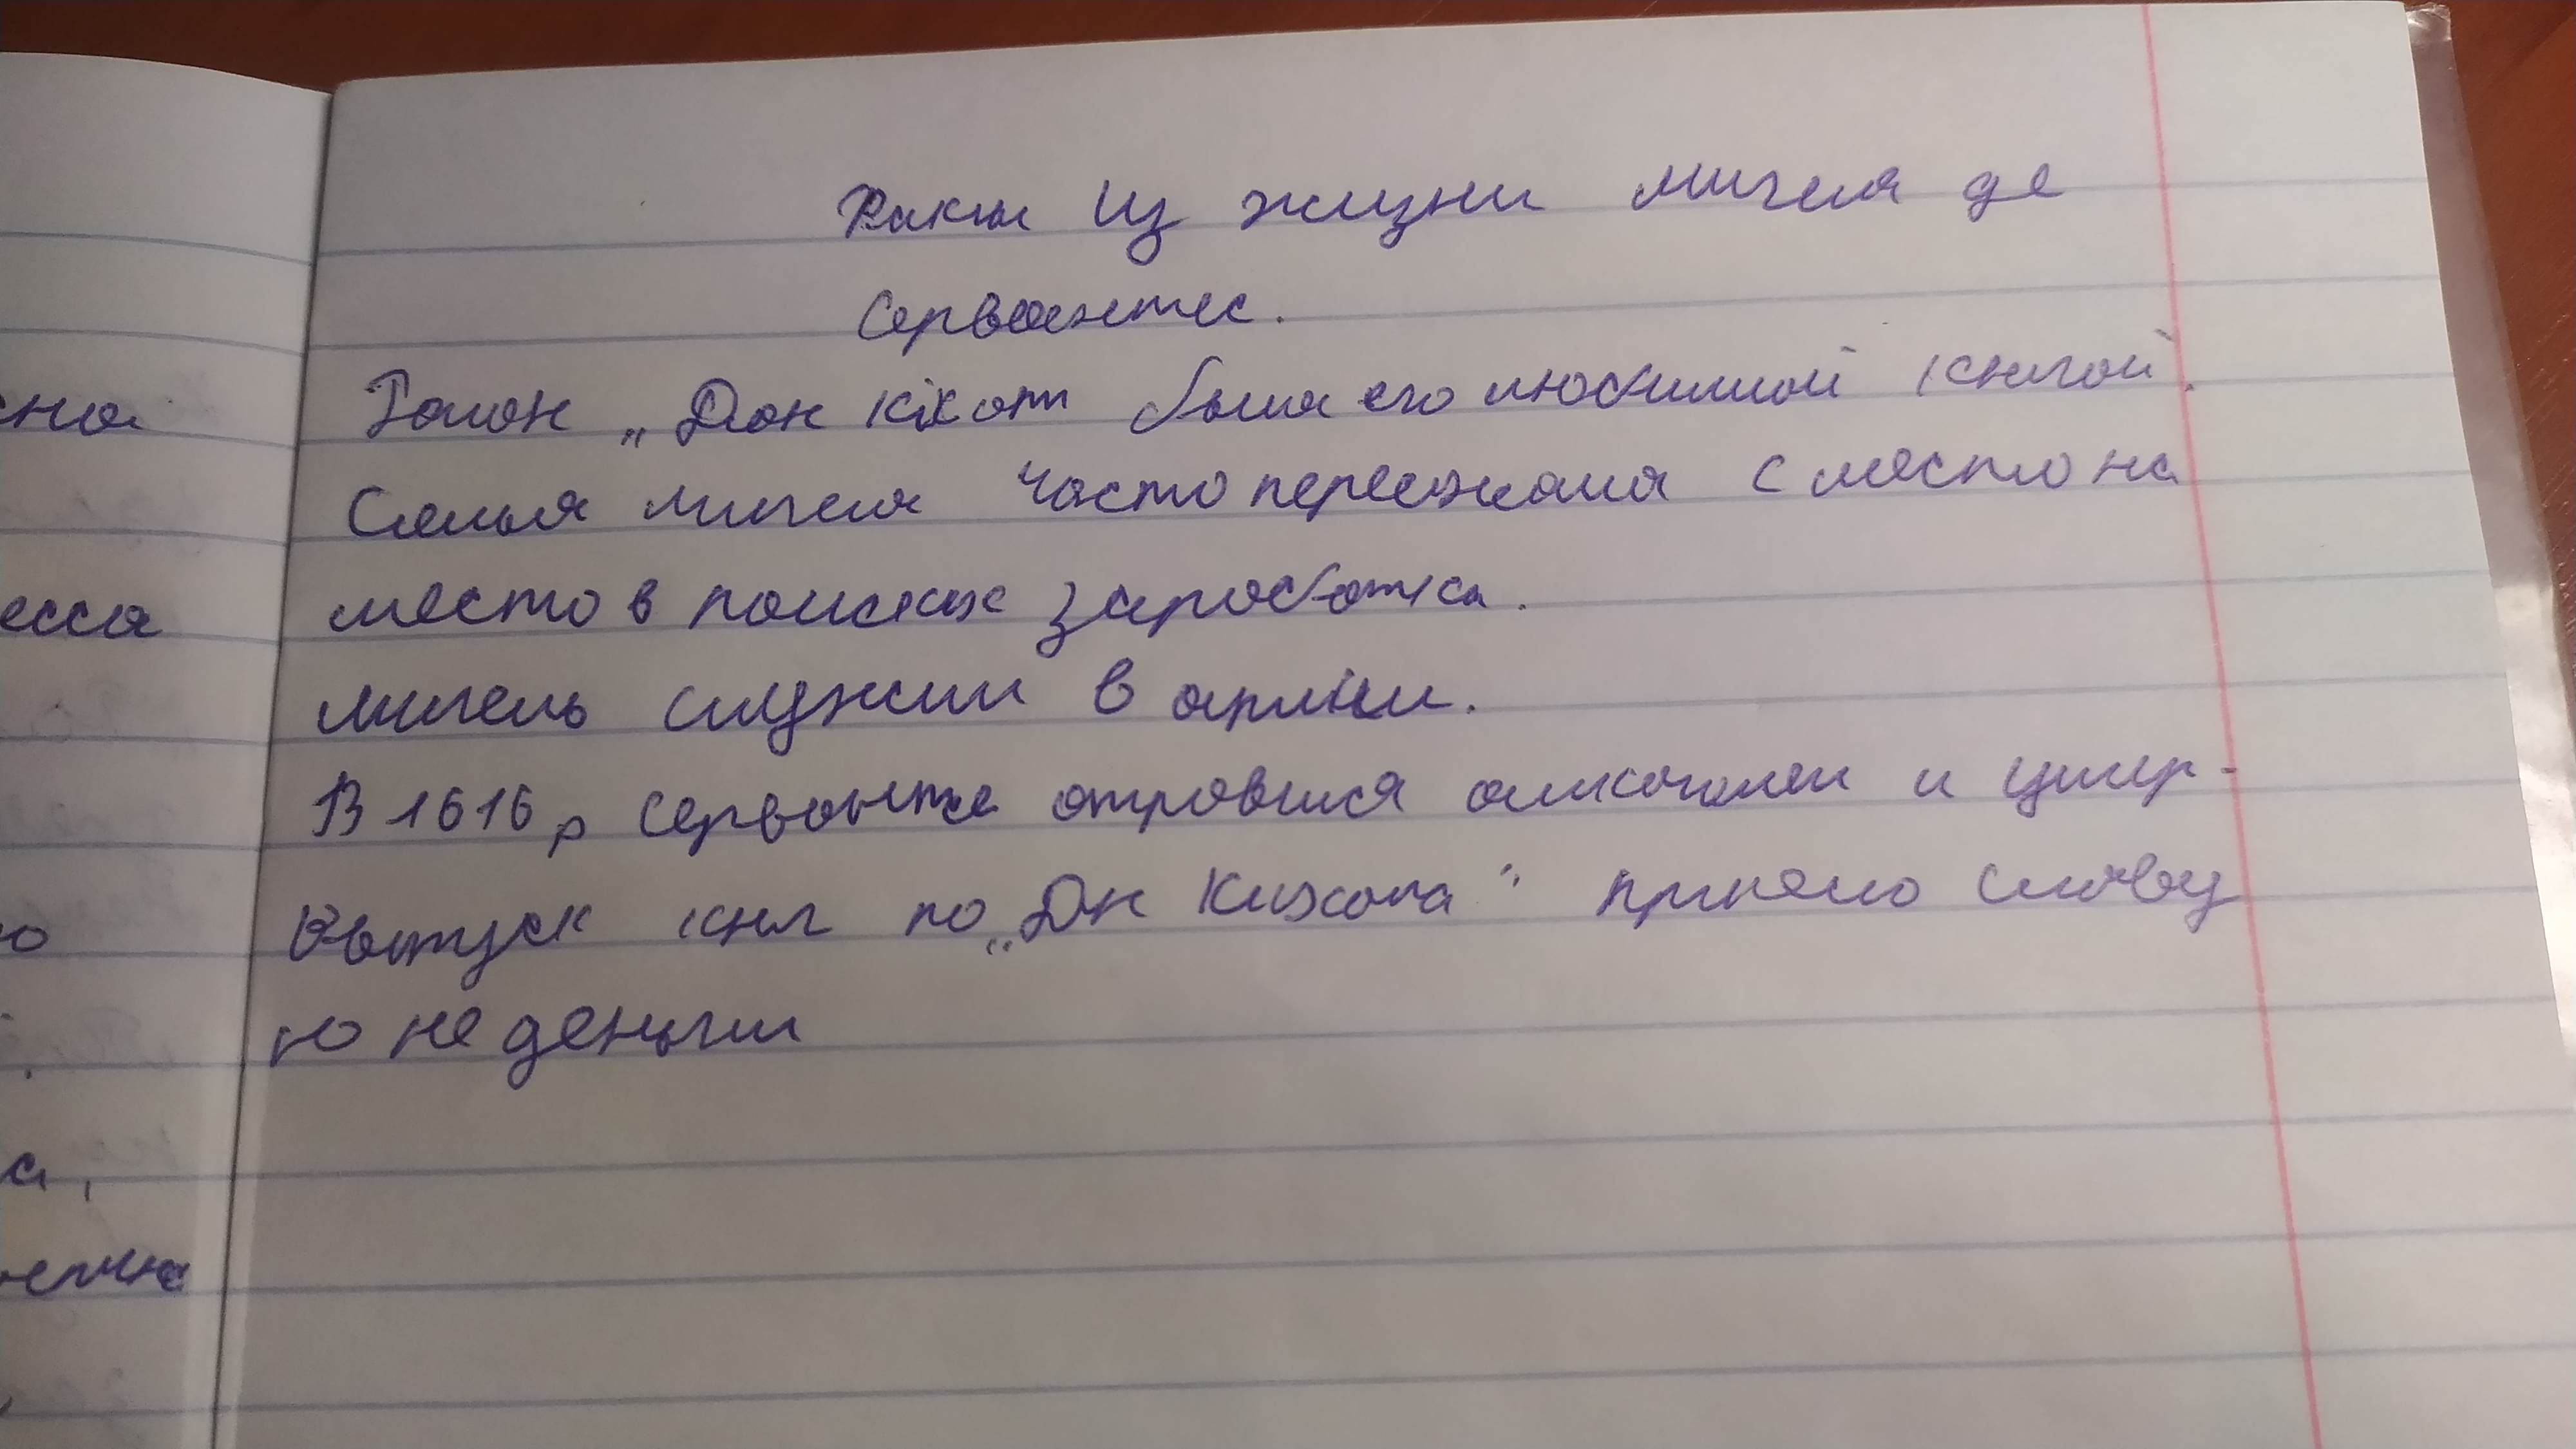 Факты Из жизни мигеля де
Сервантес.
Роман „Дон кіхот была его любимой книгой.
сна
Семья мигеля часто переезжала с место на
место в поисках заработка.
есса
мигель служил в армии.
В 1616, Сервантес отровился алкоголем и умер.
Выпуск книг по „Дн Кихота" принело славу
ю
но не деньги
а,